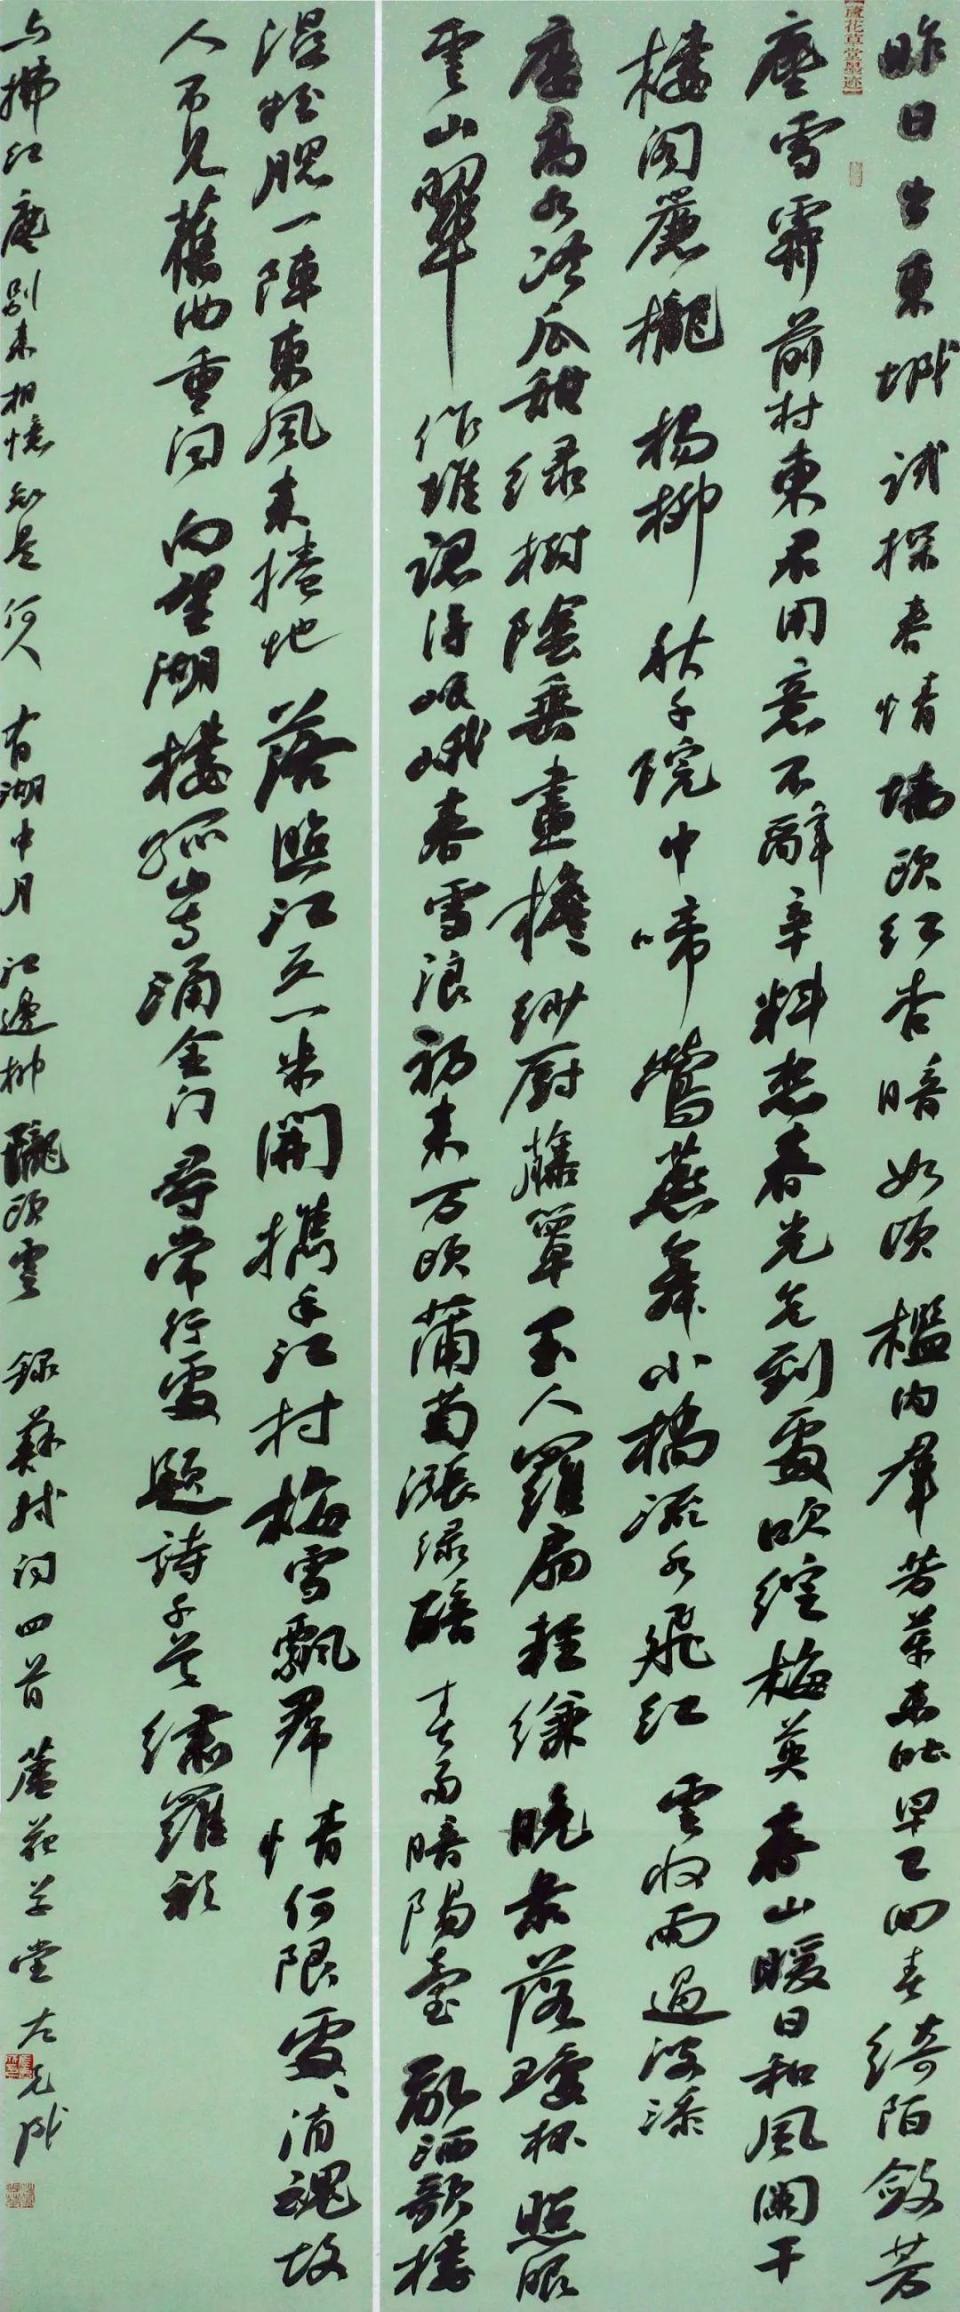 昨日出東城試探春情墻頭紅杏暗如傾檻内羣芳芽未吐早已回春綺陌斂芳
【蘆花草堂墨迹】
塵雪霽前村東君用意不辭辛料想春光先到處吹綻梅英春山暖日和風闌干
樓閣簾櫳楊柳秋千院中啼鶯燕舞小橋流水飛紅雲收雨過波添
高水冷瓜甜綠樹陰垂畫檐紗厨藤簟玉人羅扇輕縑晚景落瓊杯照眼
雲山翠作堆認得岷峨春雪浪初來万頃蒲萄漲綠醅春雨暗陽臺亂洒歌樓
濕粉腮一陣東風來捲地落照江天一半開攜手江村梅雪飄裙情何限處處消魂故
人不見舊曲重聞向望湖樓孤山寺涌金門尋常行處題詩千首繡羅衫
与拂紅塵別來相憶知是何人有湖中月江邊柳隴頭雲錄蘇軾詞四首蘆花草堂左克成